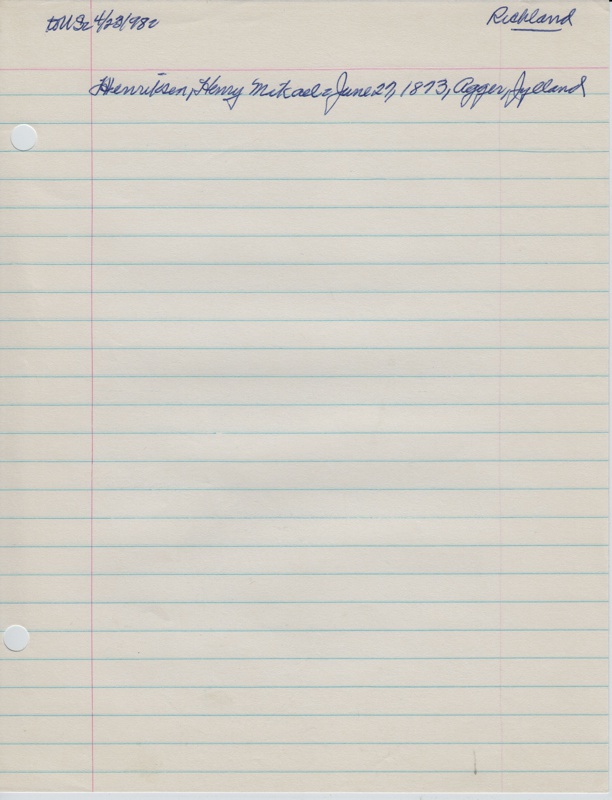 4/23/1982
Richland
Henriksen, Henry Mikael = June 27, 1873, Agger, Jylland